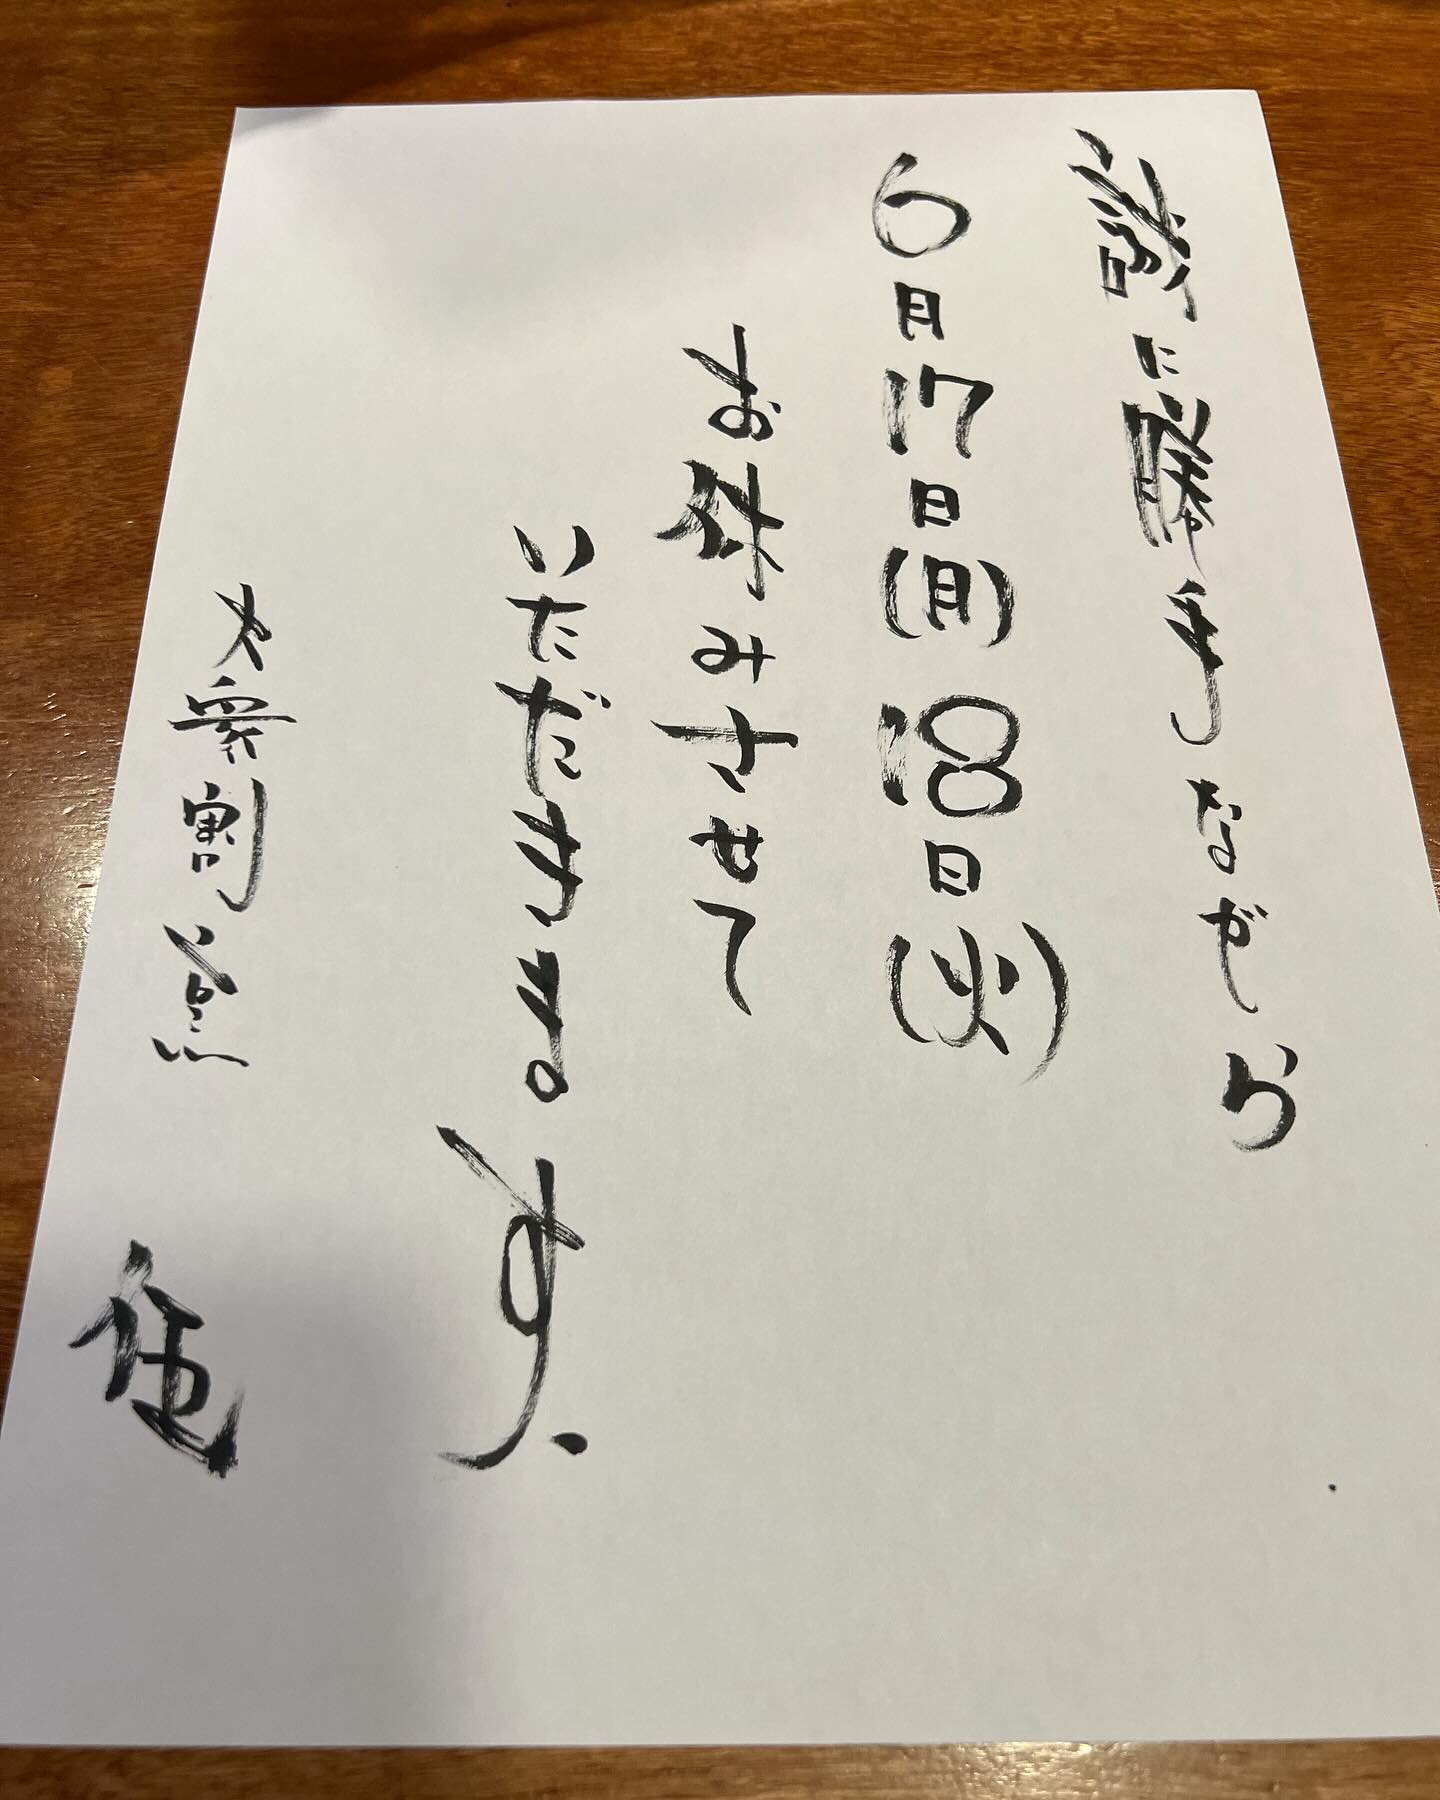 誠に勝手ながら
6月17日(月)18日(火)
お休みさせて
いただきます、
大衆割烹